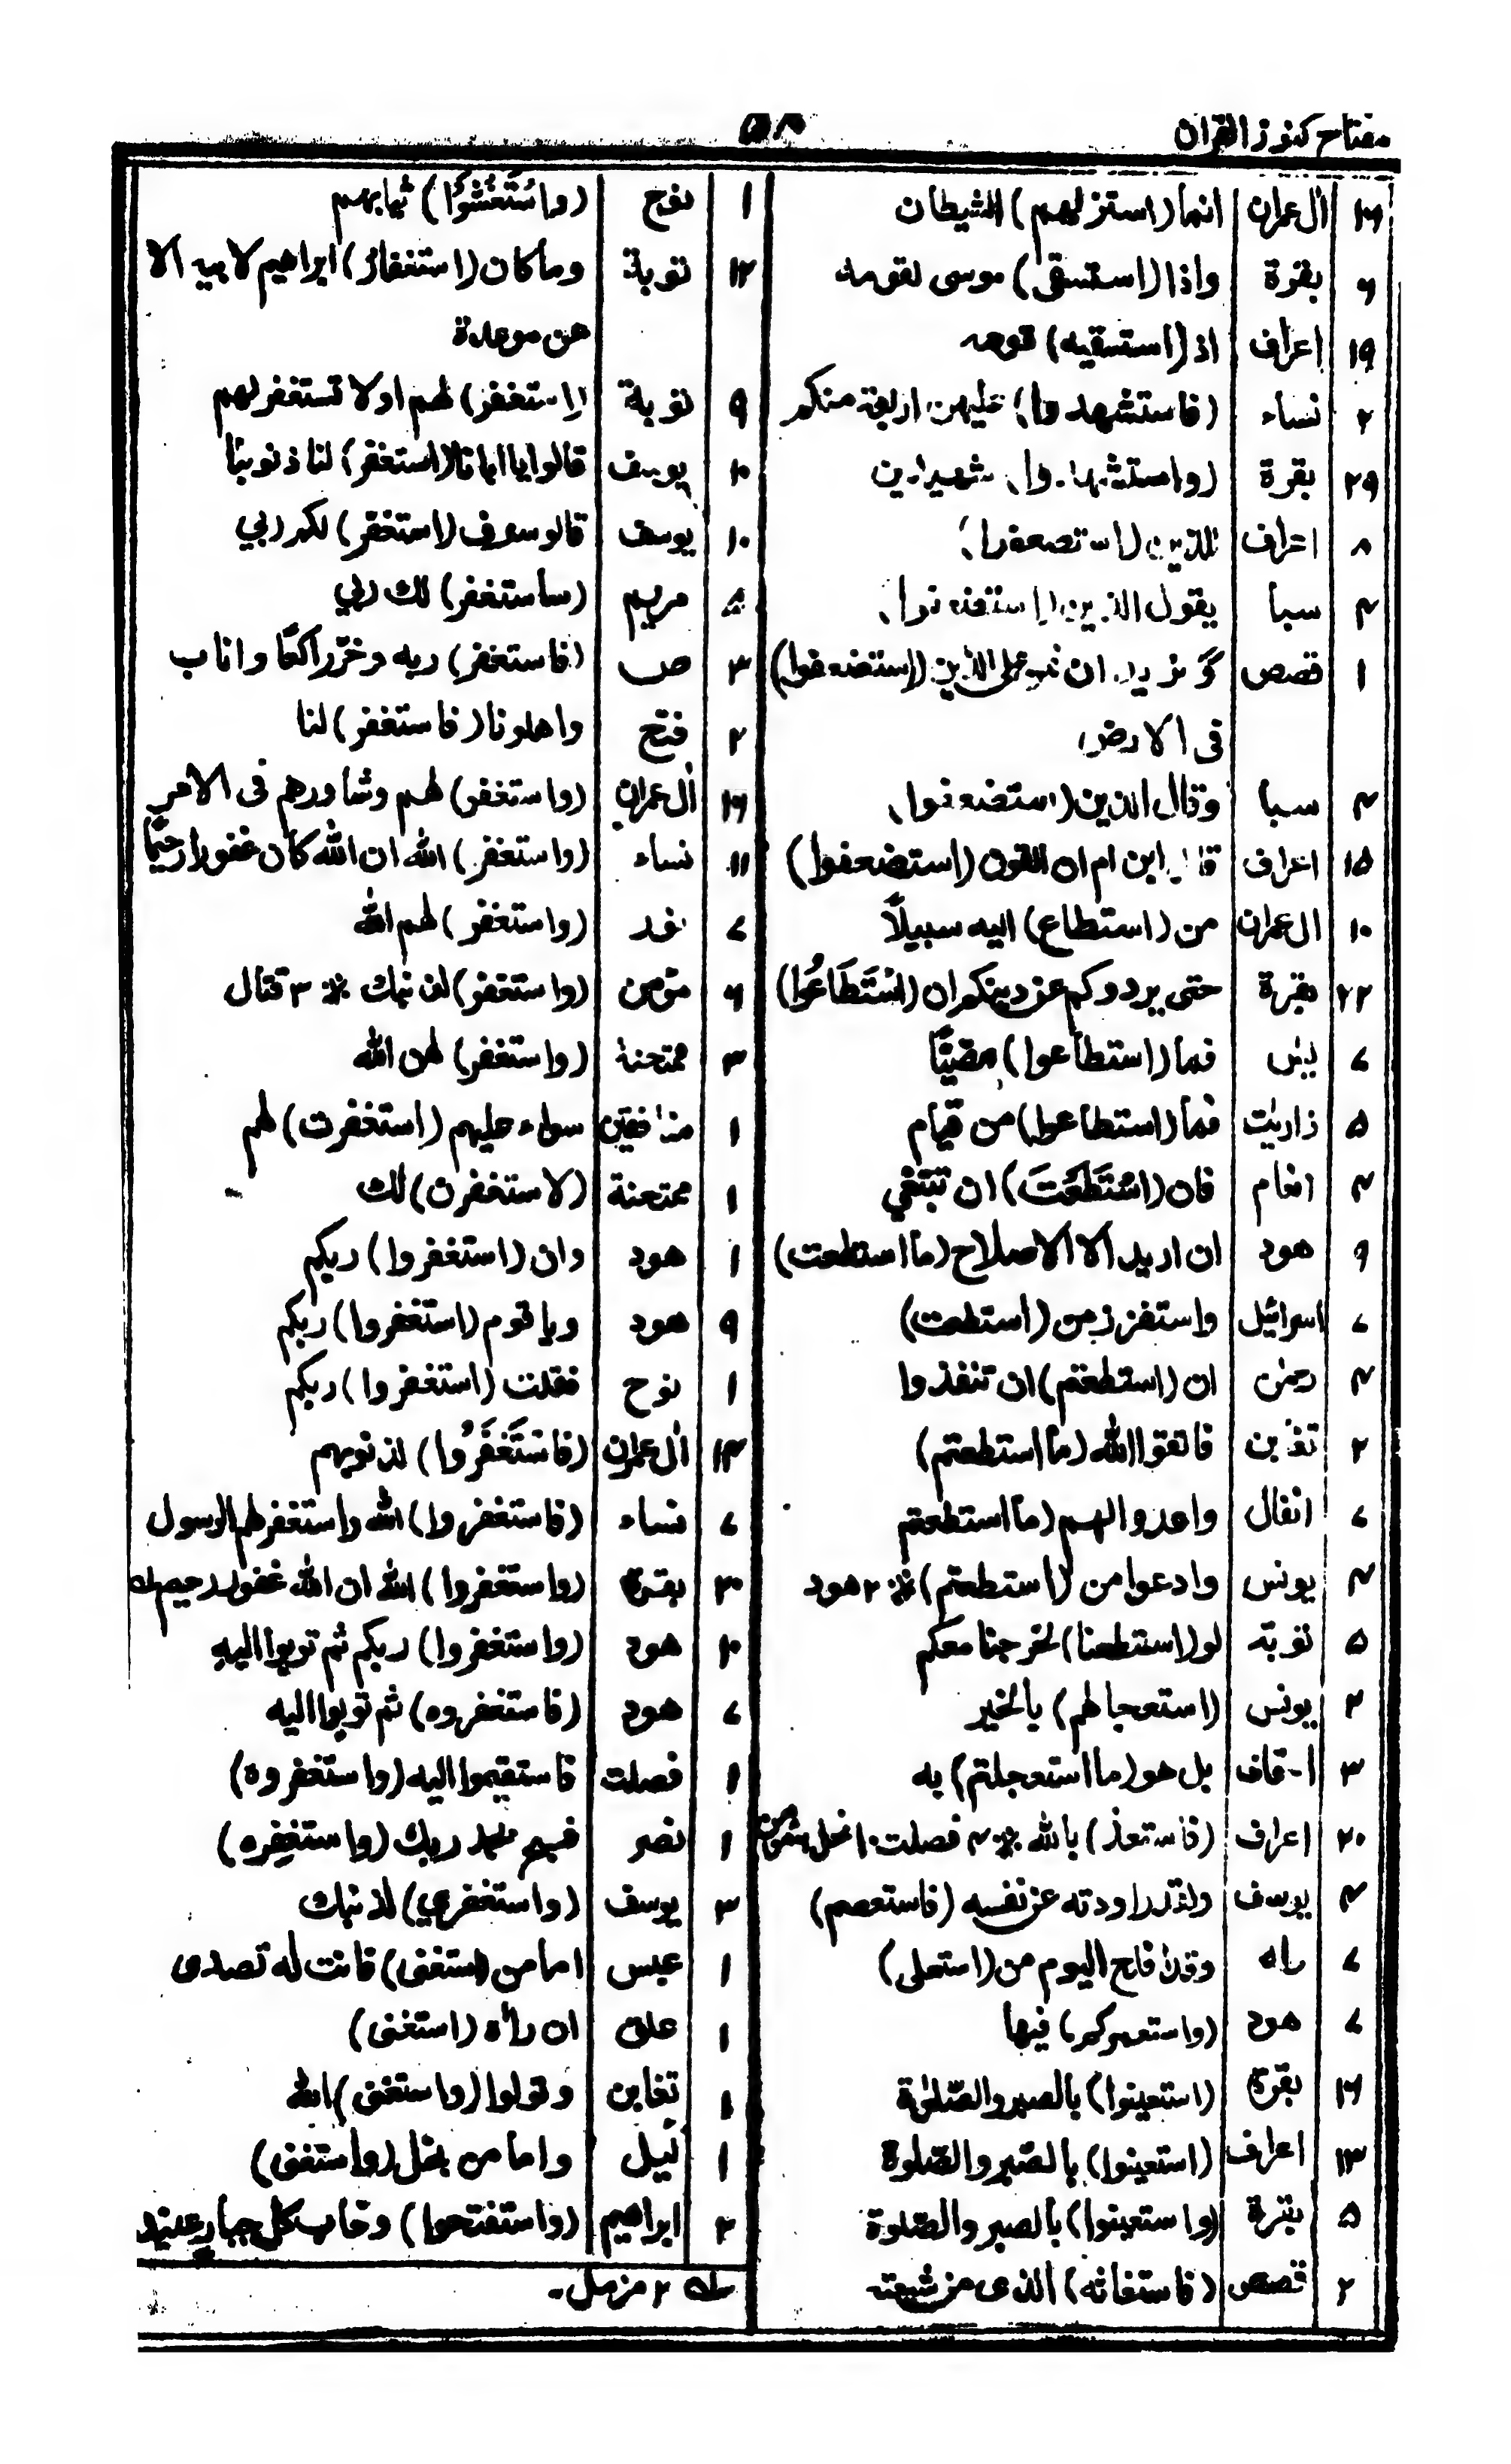 مفتاح كنوز القران
۵۸
۱۶ اٰل عمران انما (استزلهم) الشيطان
۶ بقرة واذا (استسقى) موسى لقومه
۱۹ اعراف اذ (استسقيه) قومه
۲ نساء (فاستشهدوا) عليهن اربعة منكم
۲۹ بقرة (واستشهدوا) شهيدين
۸ اعراف للذين (استضعفوا)
۴ سبا يقول الذين (استضعفوا)
۱ قصص و نريد ان نمن على الذين (استضعفوا)
فى الارض
۴ سبا وقال الذين (استضعفوا)
۱۵ اعراف قال ابن ام ان القوم (استضعفوا)
۱۰ ال عمران من (استطاع) اليه سبيلًا
۲۲ بقرة حتى يردوكم عن دينكم ان (اسْتَطَاعُوا)
۷ يٰس فما (استطاعوا) مضيًّا
۵ ذاريٰت فما (استطاعوا) من قيام
۴ انعام فان (اسْتَطَعْتَ) ان تبتغي
۹ هود ان اريد الا الاصلاح (ما استطعت)
۷ اسرائيل واستفزز من (استطعت)
۴ رحمٰن ان (استطعتم) ان تنفذوا
۲ تغابن فاتقوا الله (ما استطعتم)
۷ انفال واعدوا لهم (ما استطعتم
۴ يونس وادعوا من (استطعتم) ۲ هود
۵ توبة لو (استطعنا) لخرجنا معكم
۲ يونس (استعجالهم) بالخير
۳ احقاف بل هو (ما استعجلتم) به
۲۰ اعراف (فاستعذ) بالله ۴ فصلت ۱۰ نحل
۴ يوسف ولقد راودته عن نفسه (فاستعصم)
۷ طه وقد افلح اليوم من (استعلى)
۷ هود (واستعمركم) فيها
۱۶ بقرة (استعينوا) بالصبر والصّلوٰة
۱۳ اعراف (استعينوا) بالصّبر والصّلوة
۵ بقرة (واستعينوا) بالصبر والصّلوة
۲ قصص (فاستغاثه) الذى من شيعته
۱ نوح (واسْتَغْشَوْا) ثيابهم
۱۲ توبة وما كان (استغفار) ابراهيم لابيه الا
عن موعدة
۹ توبة (استغفر) لهم او لا تستغفر لهم
۱۰ يوسف قالوا يا ابانا (استغفر) لنا ذنوبنا
۱۰ يوسف قال سوف (استغفر) لكم ربي
۵ مريم (ساستغفر) لك ربي
۳ ص (فاستغفر) ربه وخرّ راكعًا واناب
۲ فتح واهلونا (فاستغفر) لنا
۱۶ اٰل عمران (واستغفر) لهم وشاورهم فى الامر
۱۱ نساء (واستغفر) الله ان الله كان غفورا رحيمًا
۷ نور (واستغفر) لهم الله
۶ مؤمن (واستغفر) لذنبك ۳ قتال
۳ ممتحنة (واستغفر) لهن الله
۱ منافقين سواء عليهم (استغفرت) لهم
۱ ممتحنة (لاستغفرن) لك
۱ هود وان (استغفروا) ربكم
۹ هود ويا قوم (استغفروا) ربكم
۱ نوح فقلت (استغفروا) ربكم
۱۴ اٰل عمران (فاسْتَغْفَرُوا) لذنوبهم
۷ نساء (فاستغفروا) الله واستغفر لهم الرسول
۲۰ بقرة (واستغفروا) الله ان الله غفور رحيم طه
۱۰ هود (واستغفروا) ربكم ثم توبوا اليه
۷ هود (فاستغفروه) ثم توبوا اليه
۱ فصلت فاستقيموا اليه (واستغفروه)
۱ نصر فسبح بحمد ربك (واستغفره)
۳ يوسف (واستغفري) لذنبك
۱ عبس اما من (استغنى) فانت له تصدى
۱ علق ان راٰه (استغنى)
۱ تغابن وتولوا (واستغنى) الله
۱ ليل واما من بخل (واستغنى)
۳ ابراهيم (واستفتحوا) وخاب كل جبار عنيد
طه ۲ مزمل۔